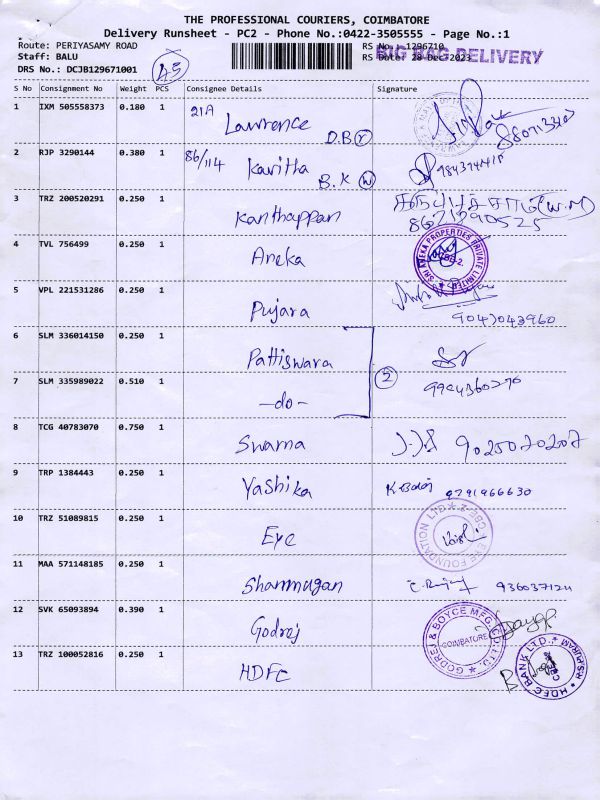 THE PROFESSIONAL COURIERS, COIMBATORE
Delivery Runsheet - PC2 - Phone No.:0422-3505555 - Page No.:1
Route: PERIYASAMY ROAD RS No : 1296710
Staff: BALU RS Date: 28 Dec 2023
BIG BAG DELIVERY
DRS No.: DCJB129671001 A5
S No Consignment No Weight PCS Consignee Details Signature
1 IXM 505558373 0.180 1 21A Lawrence D.B (r)
2 RJP 3290144 0.380 1 86/114 Kavitha B.K (w)
3 TRZ 200520291 0.250 1 Kanthappan (W.M)
8671290525
4 TVL 756499 0.250 1 Aneka SRI ANEKA PROPERTIES PRIVATE LIMITED
5 VPL 221531286 0.250 1 Pujara
9047043960
6 SLM 336014150 0.250 1 Pattiswara
7 SLM 335989022 0.510 1 -do- 2
8 TCG 40783070 0.750 1 Swarna 9025070207
9 TRP 1384443 0.250 1 Yashika K.Balaji 9791966630
10 TRZ 51089815 0.250 1 Eye EYE FOUNDATION LTD
11 MAA 571148185 0.250 1 Shanmugan 936037124
12 SVK 65093894 0.390 1 Godrej GODREJ & BOYCE MFG. CO. LTD. COIMBATORE
13 TRZ 100052816 0.250 1 HDFC HDFC BANK LTD. R.S. PURAM